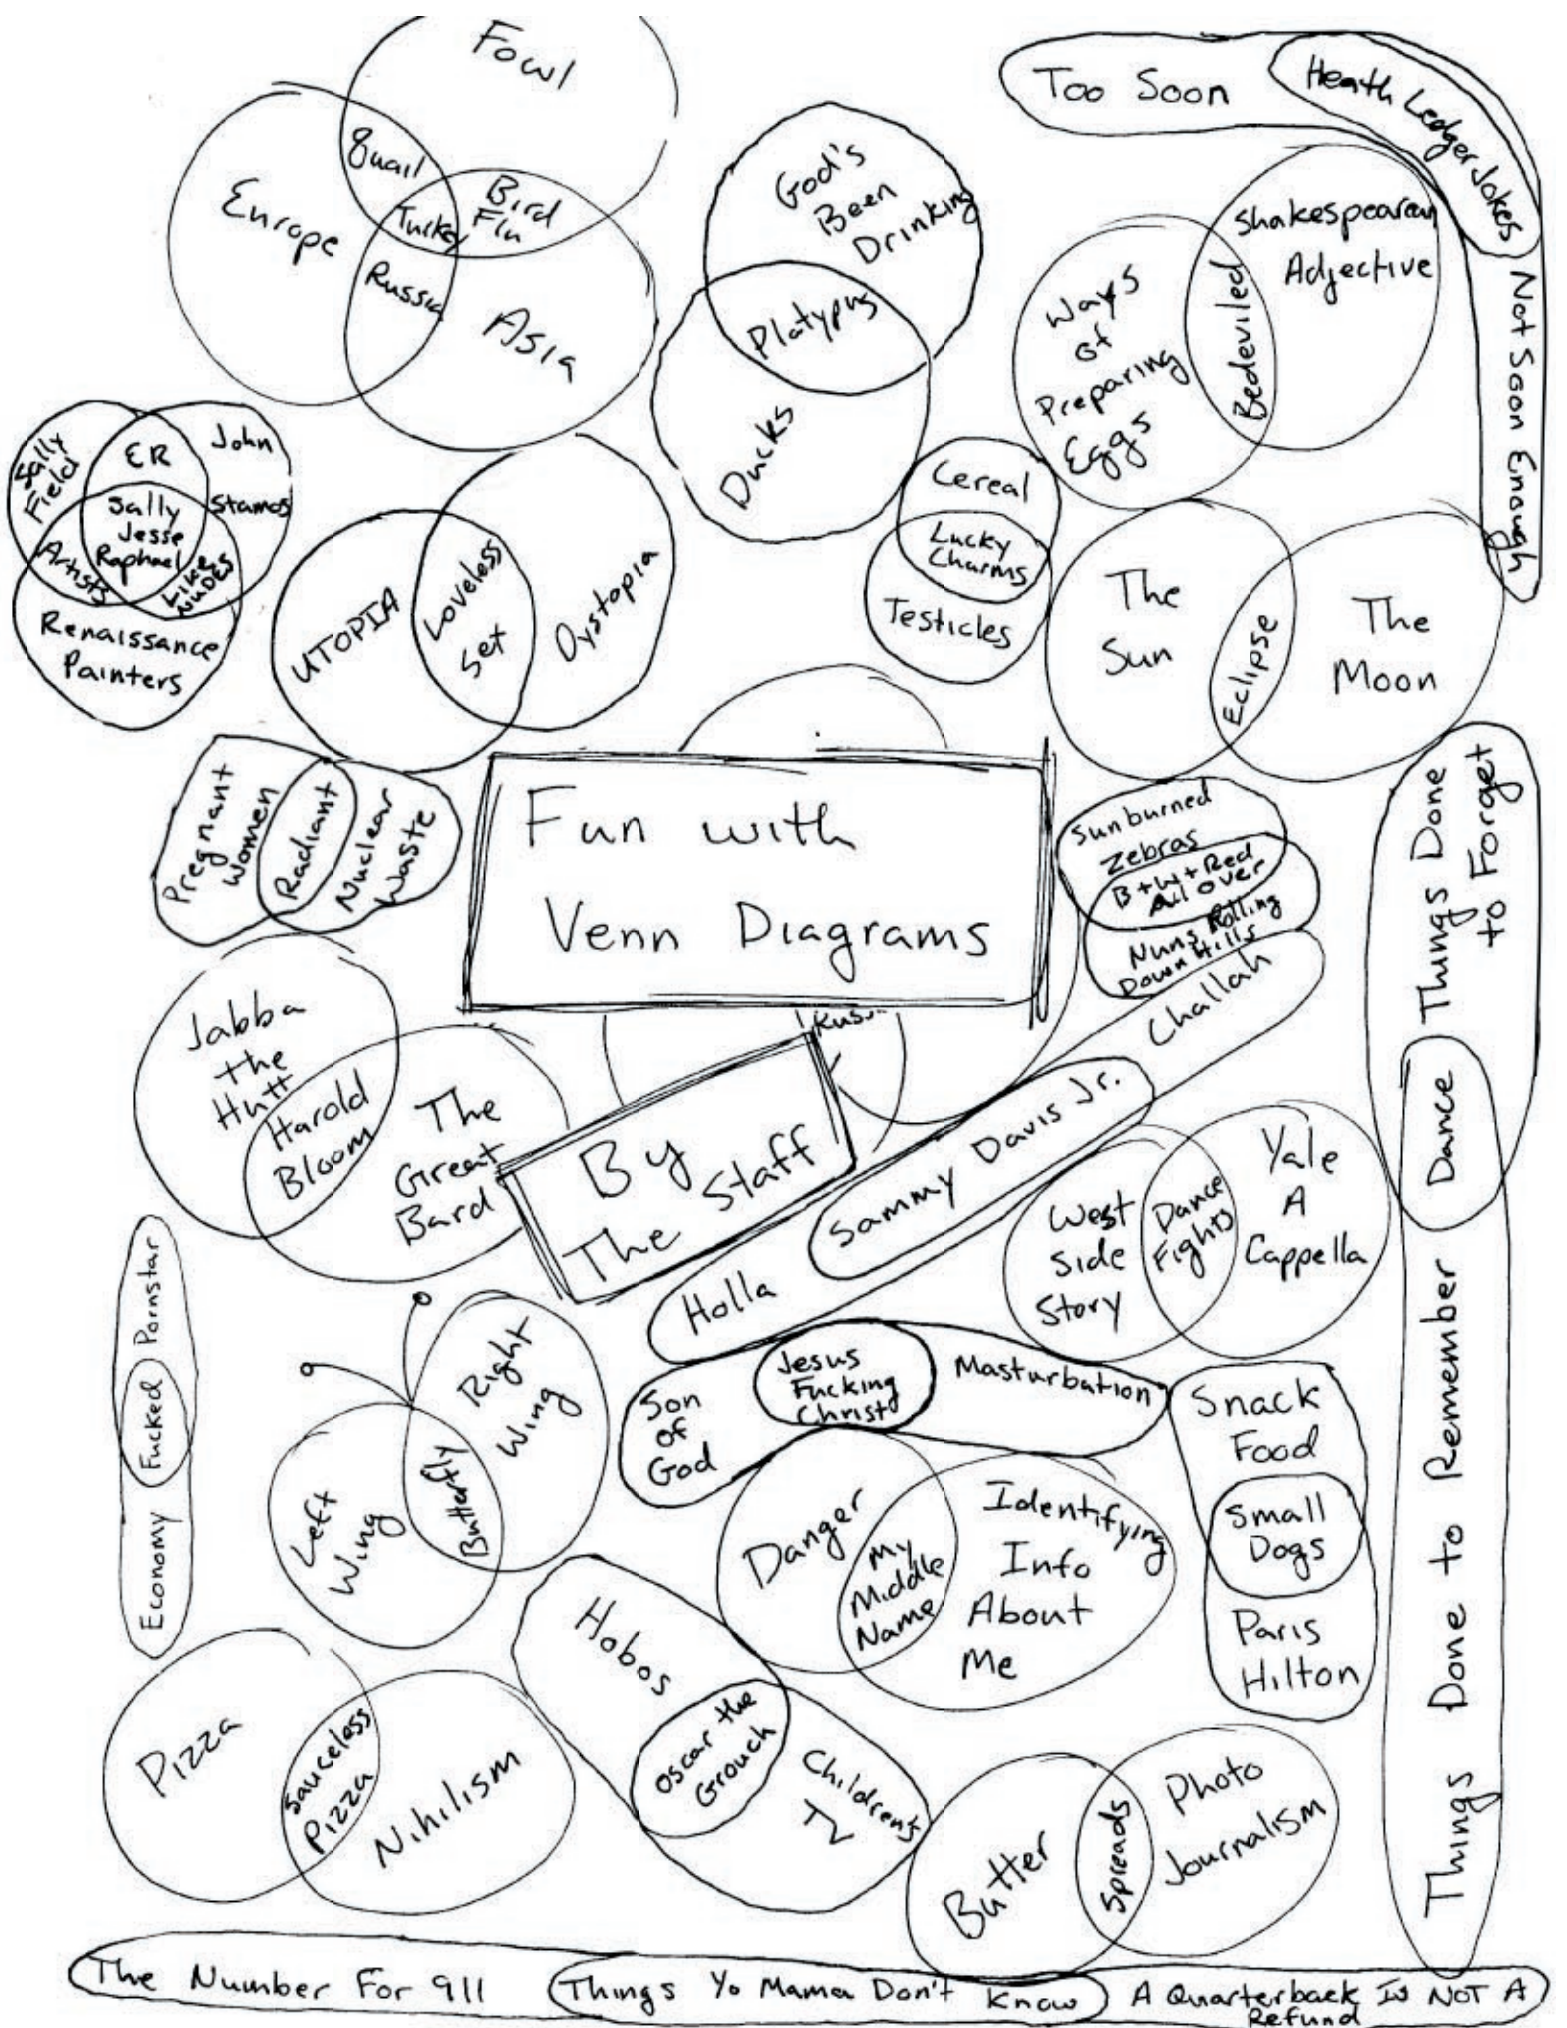 Fowl
Quail
Europe
Bird
Flu
Turkey
Russia
Asia
God's
Been
Drinking
Platypus
Ducks
Too Soon
Heath Ledger Jokes
Not Soon Enough
Shakespearean
Adjective
Bedeviled
Ways
of
Preparing
Eggs
Sally
Field
ER
John
Stamos
Sally
Jesse
Raphael
Artists
Like
NUDES
Renaissance
Painters
UTOPIA
Loveless
Sex
Dystopia
Cereal
Lucky
Charms
Testicles
The
Sun
Eclipse
The
Moon
Pregnant
Women
Radiant
Nuclear
Waste
Fun with
Venn Diagrams
By
The Staff
Sunburned
Zebras
B+W+Red
All over
Nuns Rolling
Down Hills
Things Done
to Forget
Dance
Things Done to Remember
Jabba
the
Hutt
Harold
Bloom
The
Great
Bard
Challah
Sammy Davis Jr.
Holla
West
Side
Story
Dance
Fights
Yale
A
Cappella
Pornstar
Fucked
Economy
Right
Wing
Butterfly
Left
Wing
Son
of
God
Jesus
Fucking
Christ
Masturbation
Snack
Food
Small
Dogs
Paris
Hilton
Danger
My
Middle
Name
Identifying
Info
About
Me
Hobos
Oscar the
Grouch
Children's
TV
Pizza
Sauceless
Pizza
Nihilism
Butter
Spreads
Photo
Journalism
The Number For 911
Things Yo Mama Don't Know
A Quarterback Is NOT A
Refund